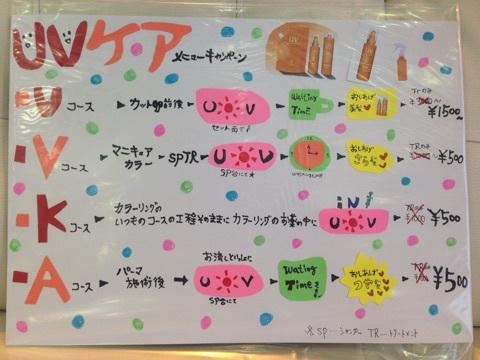 UVケア メニューキャンペーン
・U コース カット前後 U V Waiting TIME おしあげ TRのみ ¥1500~
セット面で♪
・V コース マニキュアカラー SPTR U V おしあげ TRのみ ¥500
SP台にて★
・K コース カラーリングの いつものコースの工程そのままに カラーリングのお薬の中に iN U V ¥500
・A コース パーマ施術後 お流しといっしょに U V Waiting Time おしあげ ¥500
SP台にて
※SP…シャンプー TR…トリートメント